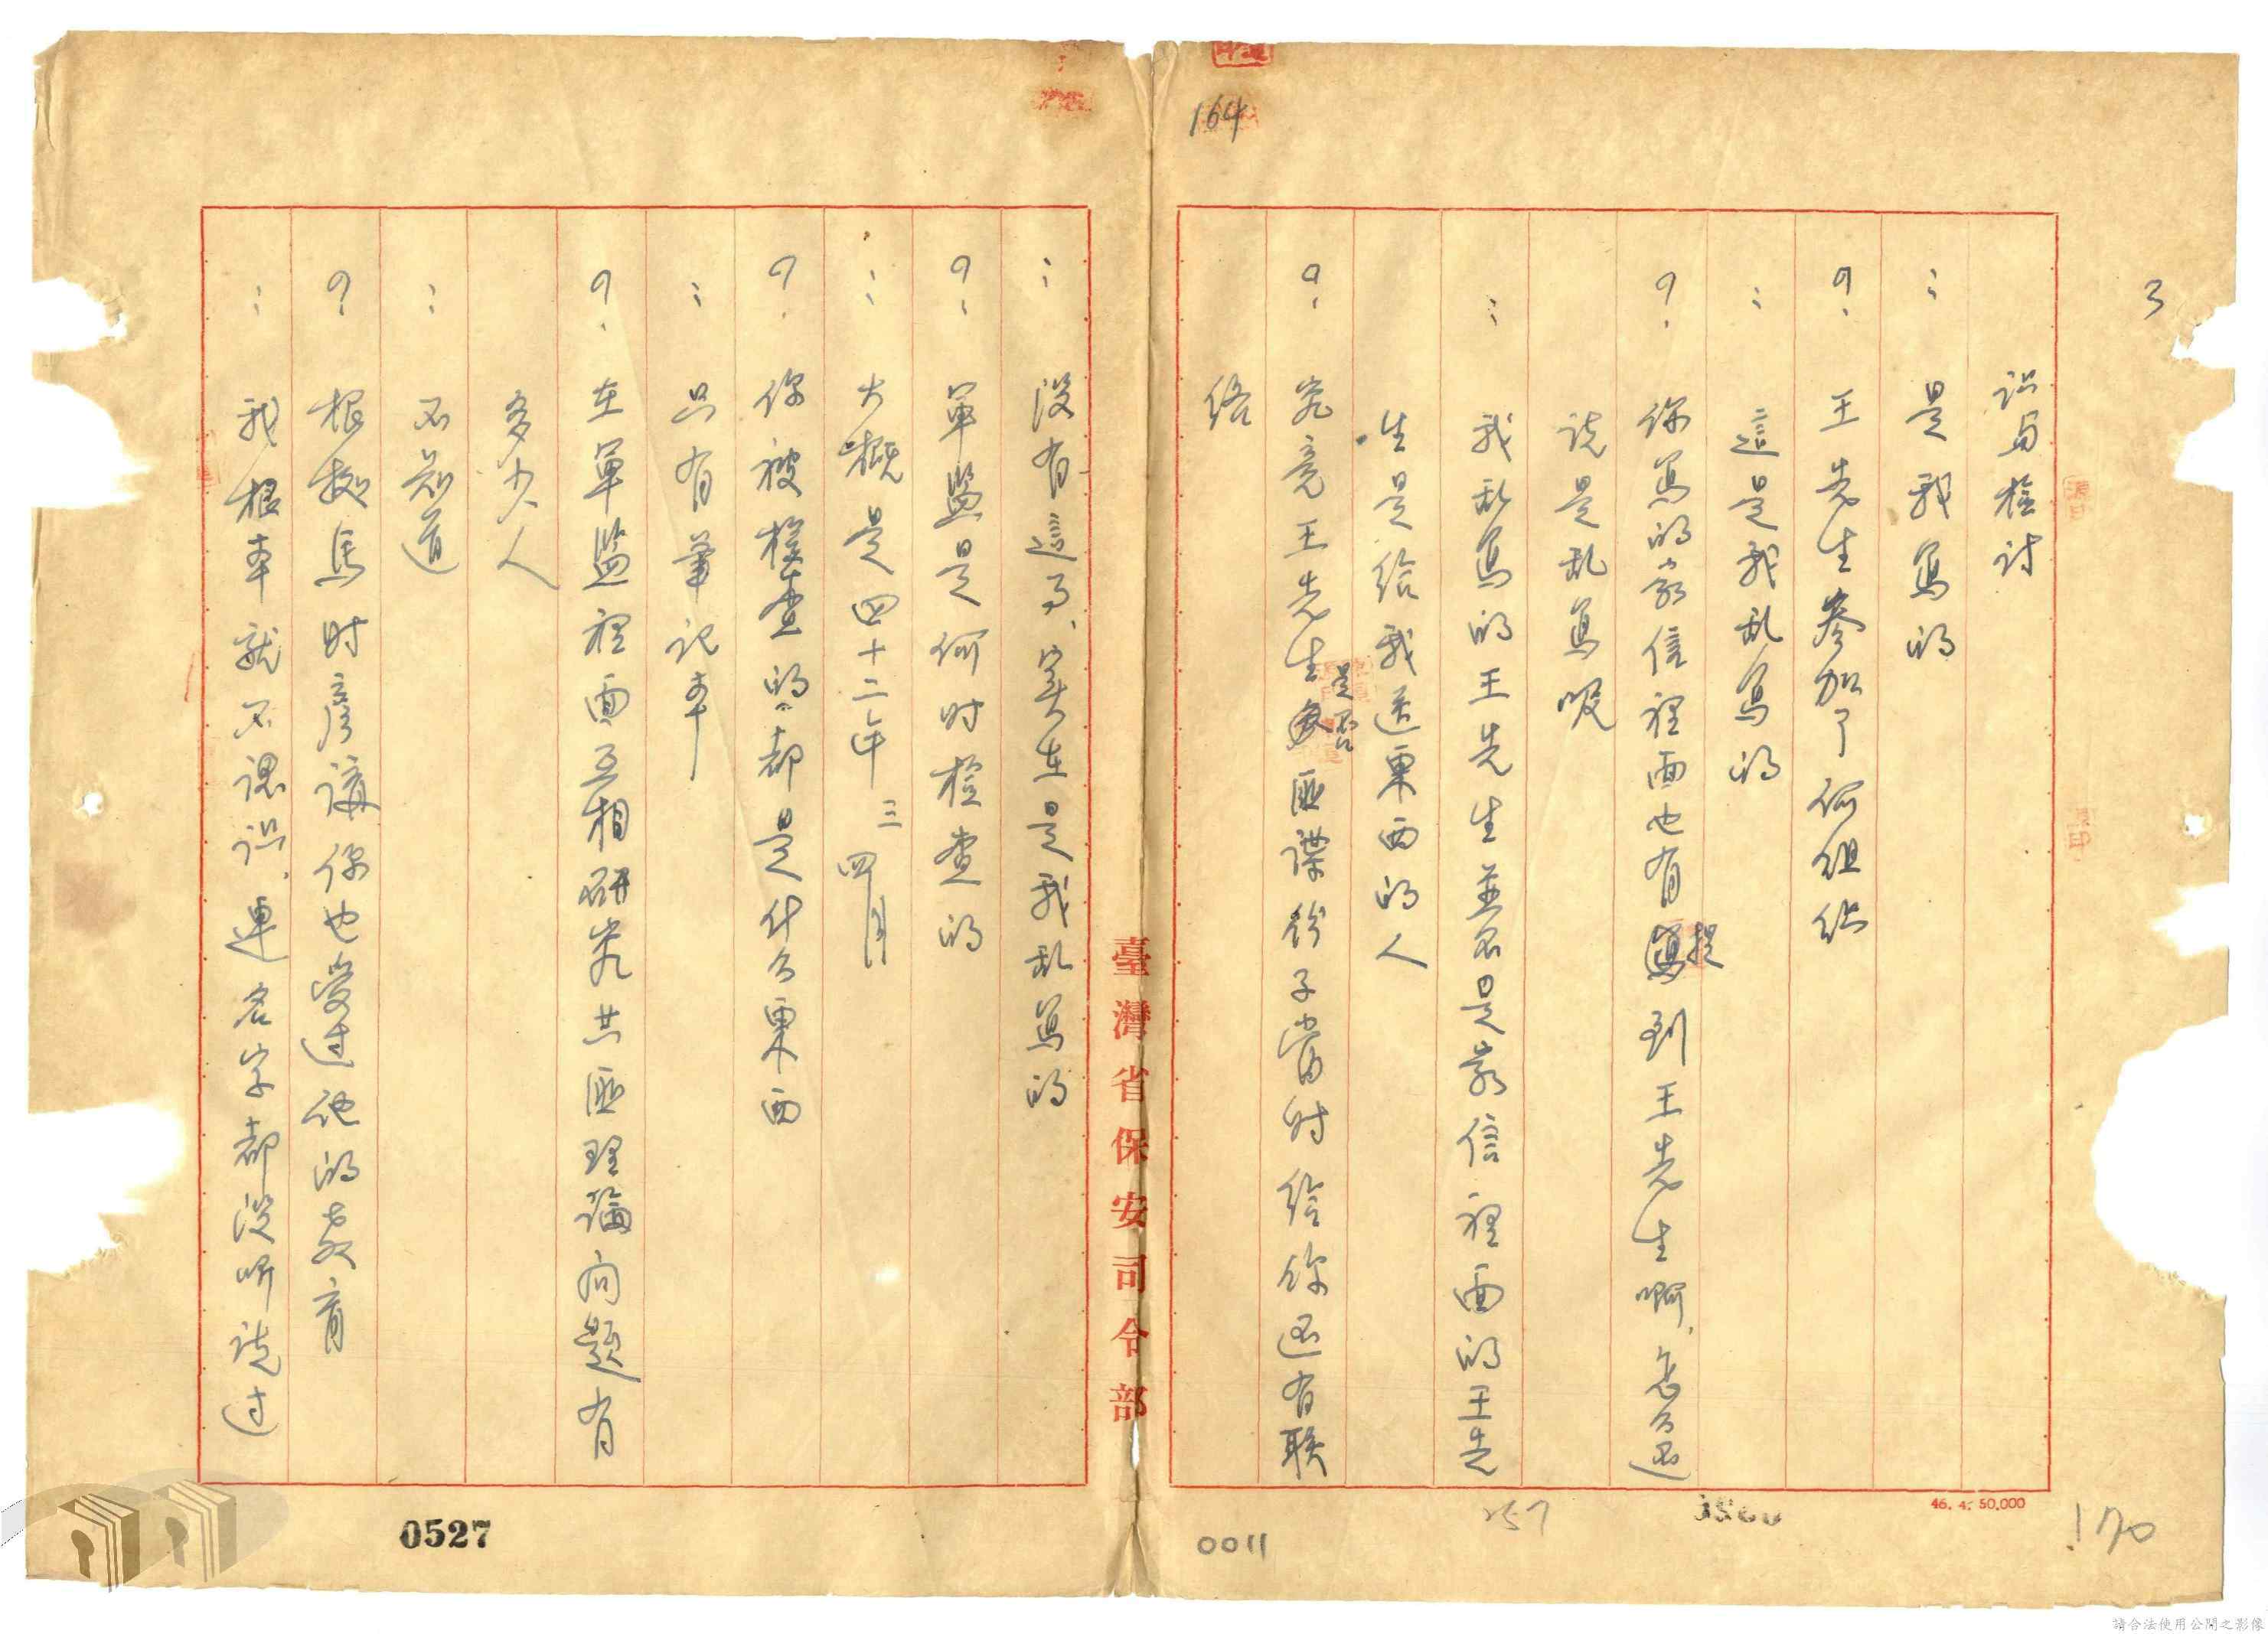 164
3
识与檢討
： 是我寫的
？ 王先生參加了何組织
： 這是我乱寫的
？ 你寫的家信裡面也有提到王先生啊、怎么还
说是乱寫呢
： 我乱寫的王先生並不是家信裡面的王先
生是給我送東西的人
？ 究竟王先生是否匪諜份子當时給你还有联
络
： 沒有這了、实在是我乱寫的
？ 軍監是何时檢查的
： 大概是四十二年三四月
？ 你被檢查的都是什么東西
： 只有筆记本
？ 在軍監裡面互相研究共匪理論问题有
多少人
： 不知道
？ 根據馬时彦講你也受过他的教育
： 我根本就不認识、連名字都没听说过
臺灣省保安司令部
46. 4. 50,000
170
257
0011
0527
請合法使用公開之影像